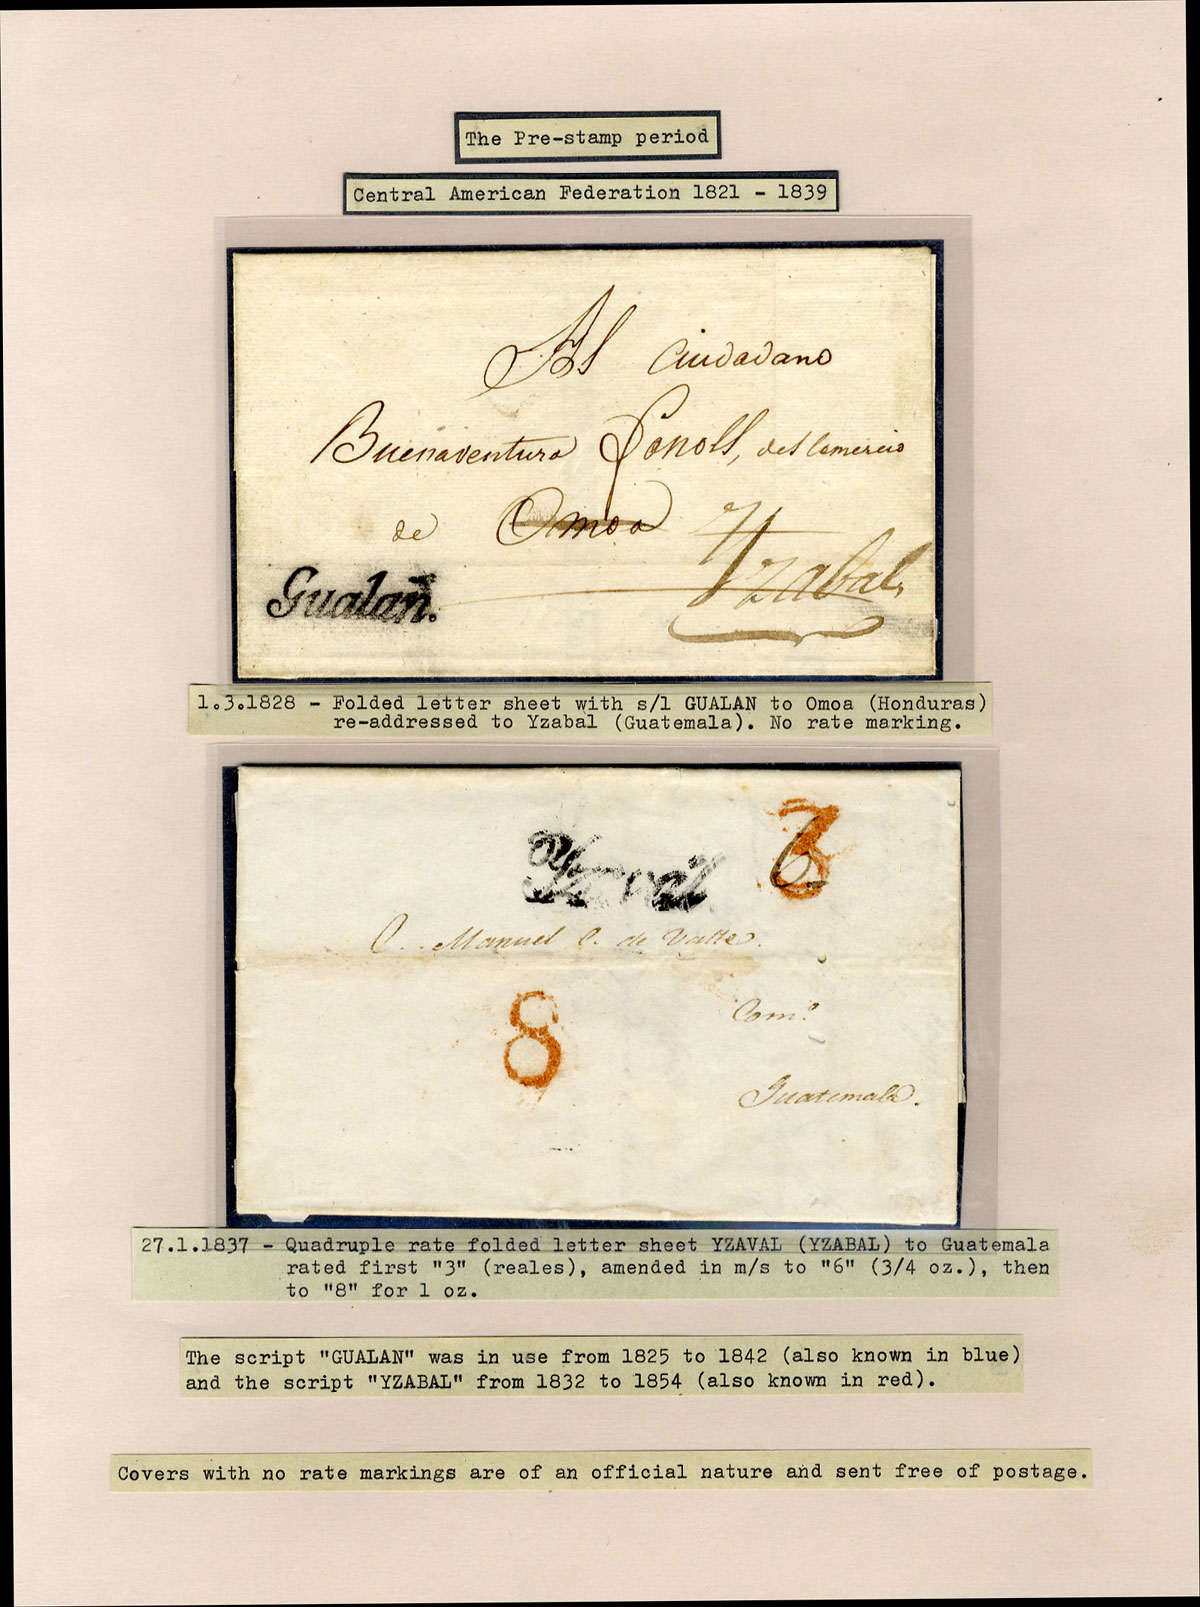 The Pre-stamp period
Central American Federation 1821 - 1839
Al Ciudadano
Buenaventura
del Comercio
de Omoa Yzabal
Gualan.
1.3.1828 - Folded letter sheet with s/l GUALAN to Omoa (Honduras)
re-addressed to Yzabal (Guatemala). No rate marking.
Yzaval
3
6
C. Manuel C. de Valle.
8
Como.
Guatemala.
27.1.1837 - Quadruple rate folded letter sheet YZAVAL (YZABAL) to Guatemala
rated first "3" (reales), amended in m/s to "6" (3/4 oz.), then
to "8" for 1 oz.
The script "GUALAN" was in use from 1825 to 1842 (also known in blue)
and the script "YZABAL" from 1832 to 1854 (also known in red).
Covers with no rate markings are of an official nature and sent free of postage.